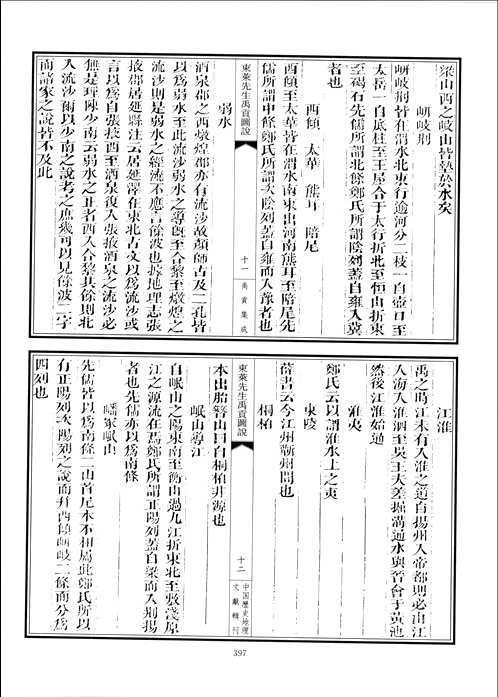 梁山西之岐山皆墊於水矣
岍岐荆
岍岐荆皆在渭水北東行逾河分二枝一自壺口至
太岳一自底柱至王屋合于太行折北至恒山折東
至碣石先儒所謂北條鄭氏所謂陰列蓋自雍入冀
者也
西傾 太華 熊耳 陪尾
西傾至太華皆在渭水南東出河南熊耳至陪尾先
儒所謂中條鄭氏所謂次陰列蓋自雍而入豫者也
弱水
酒泉郡之西燉煌郡亦有流沙故顔師古及二孔皆
以爲弱水至此流沙弱水之導旣至合黎至燉煌之
流沙則是弱水之經流不應言餘波也按地理志張
掖郡居延縣注云居延澤在東北古文以爲流沙或
言以爲自張掖西至酒泉復入張掖酒泉之流沙必
無是理陳少南云弱水之正者西入合黎其餘則北
入流沙爾以少南之說考之庶幾可以見餘波二字
而諸家之說皆不及此
東萊先生禹貢圖說
十一
禹貢集成
江淮
禹之時江未有入淮之道自揚州入帝都則必由江
入海入淮泗至吳王夫差掘溝通水與晉會于黄池
然後江淮始通
淮夷
鄭氏云以謂淮水上之夷
東陵
薛書云今江州蘄州間也
桐柏
本出胎簪山曰自桐柏非源也
岷山導江
自岷山之陽東南至衡山過九江折東北至敷淺原
江之源流在焉鄭氏所謂正陽列蓋自梁而入荆揚
者也先儒亦以爲南條
嶓冢岷山
先儒皆以爲南條二山首尾本不相屬此鄭氏所以
有正陽列次陽列之說而幷西傾岍岐二條而分爲
四列也
東萊先生禹貢圖說
十二
中国歷史地理
文獻輯刊
397